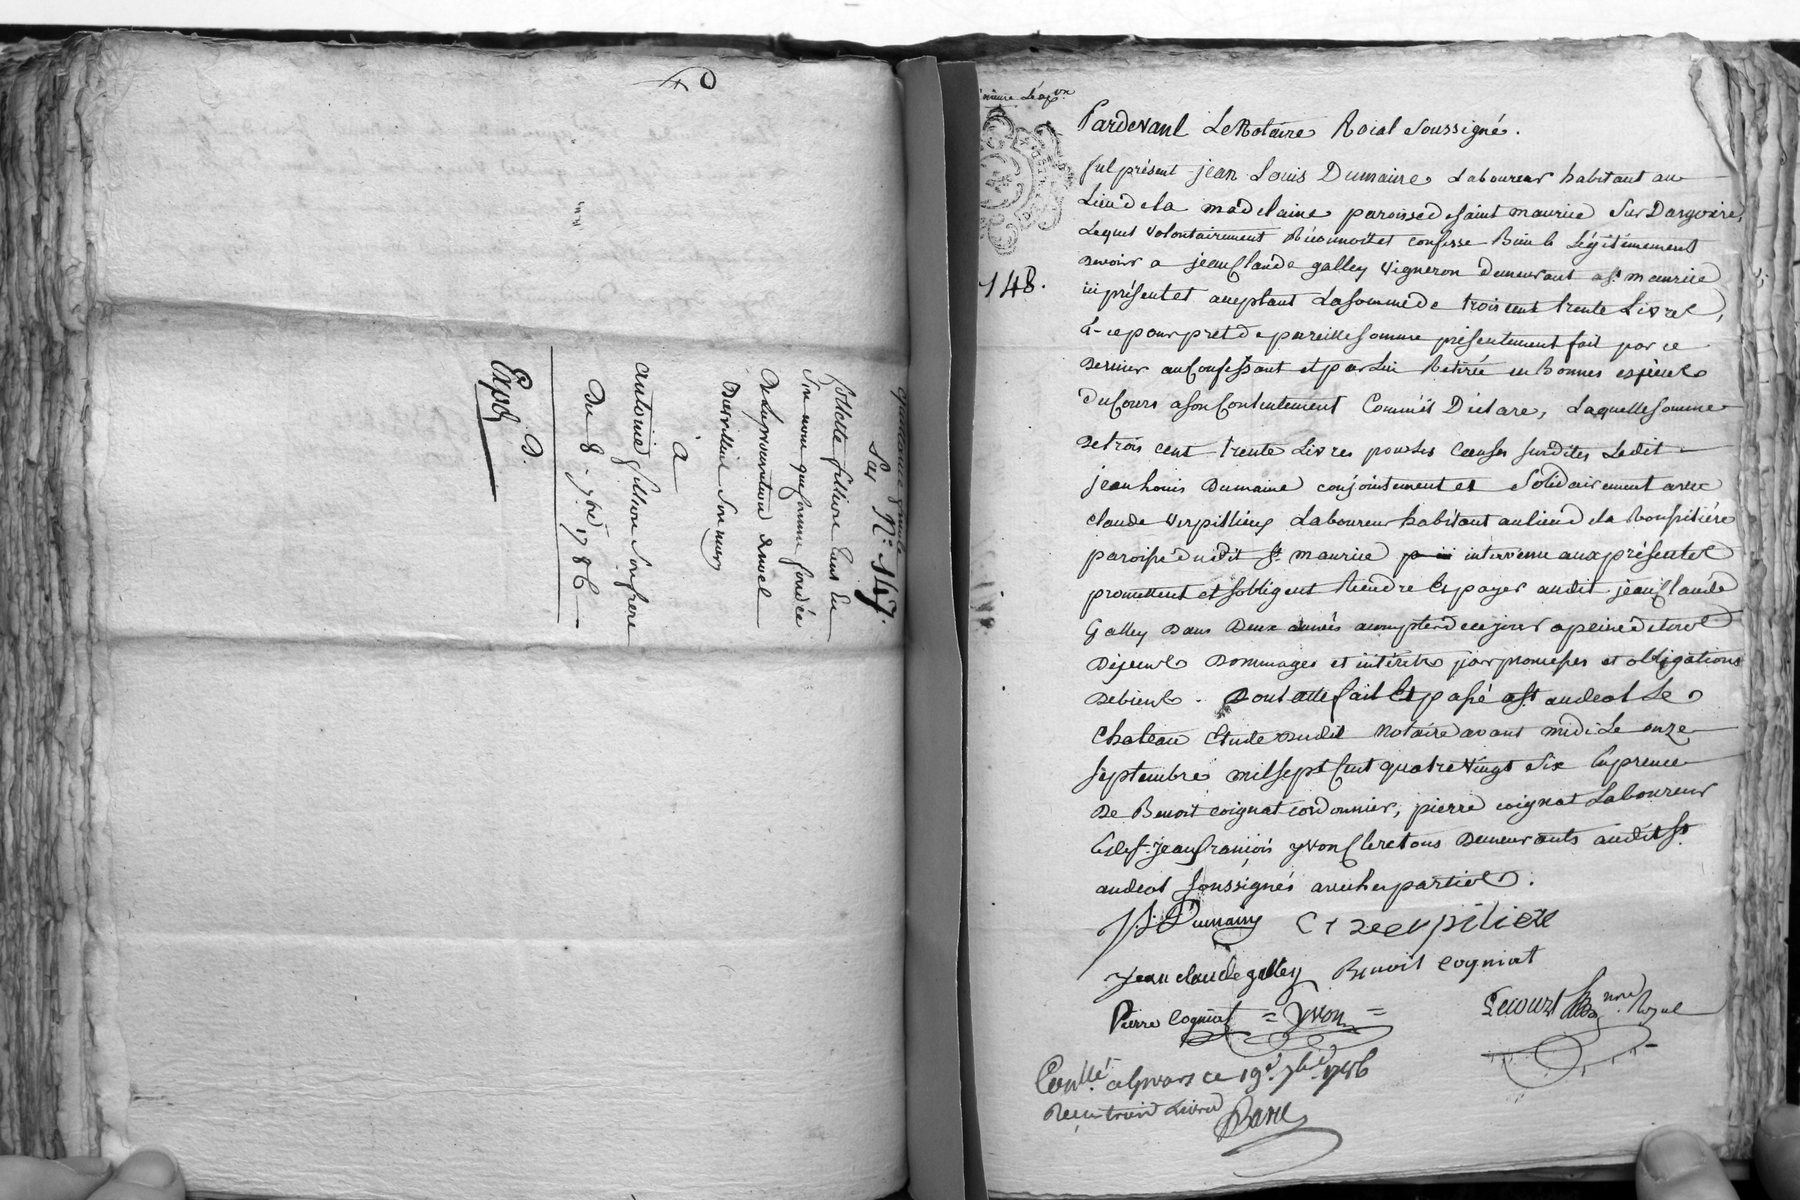 quittance finale
Sur N.° 147.
Antoine
Son frere
Du 8. 7bre 1786
D.
Expd
148.
Pardevant Le Notaire Roial Soussigné.
fut présent jean Louis Dumaine Laboureur habitant au
Lieu de la madelaine paroisse de saint maurice Sur Dargoire,
Lequel volontairement Réconnoit et confesse Bien & Légitimement
devoir a jean Claude galley vigneron demeurant a st. maurice
ici présent et aceptant La somme de trois cent trente Livres,
& ce pour pret de pareille somme présentement fait par ce
dernier au Confessant et par Lui Retirée en Bonnes espèces
du Cours a son Contentement Comm'il Déclare, Laquelle somme
de trois cent trente Livres pour les Causes susdites Ledit
jean Louis Dumaine conjointement et Solidairement avec
claude verpillieux Laboureur habitant au lieu de la
paroisse dudit St. maurice intervenu aux présentes
promettent et s'obligent Rendre & payer audit jean Claude
Galley dans deux années a compter de ce jour a peine de tous
dépens dommages et intérêts par promesses et obligations
de biens. Dont acte fait & passé a St. andeol Le
Chateau Etude dudit Notaire avant midi Le onze
septembre mil sept Cent quatre vingt Six En prence
de Benoit coignat cordonnier, pierre coignat Laboureur
& de Sr. jean françois yvon Clerc tous demeurants audit St.
andeol Soussignés avec les parties.
J. L. Dumainy
Jean claude galley Benoit Cogniat
Pierre Cogniat = Yvon = Lecourt Nore. Royal
Conllé. a givors ce 19e. 7bre 1786
Reçu trois Livres